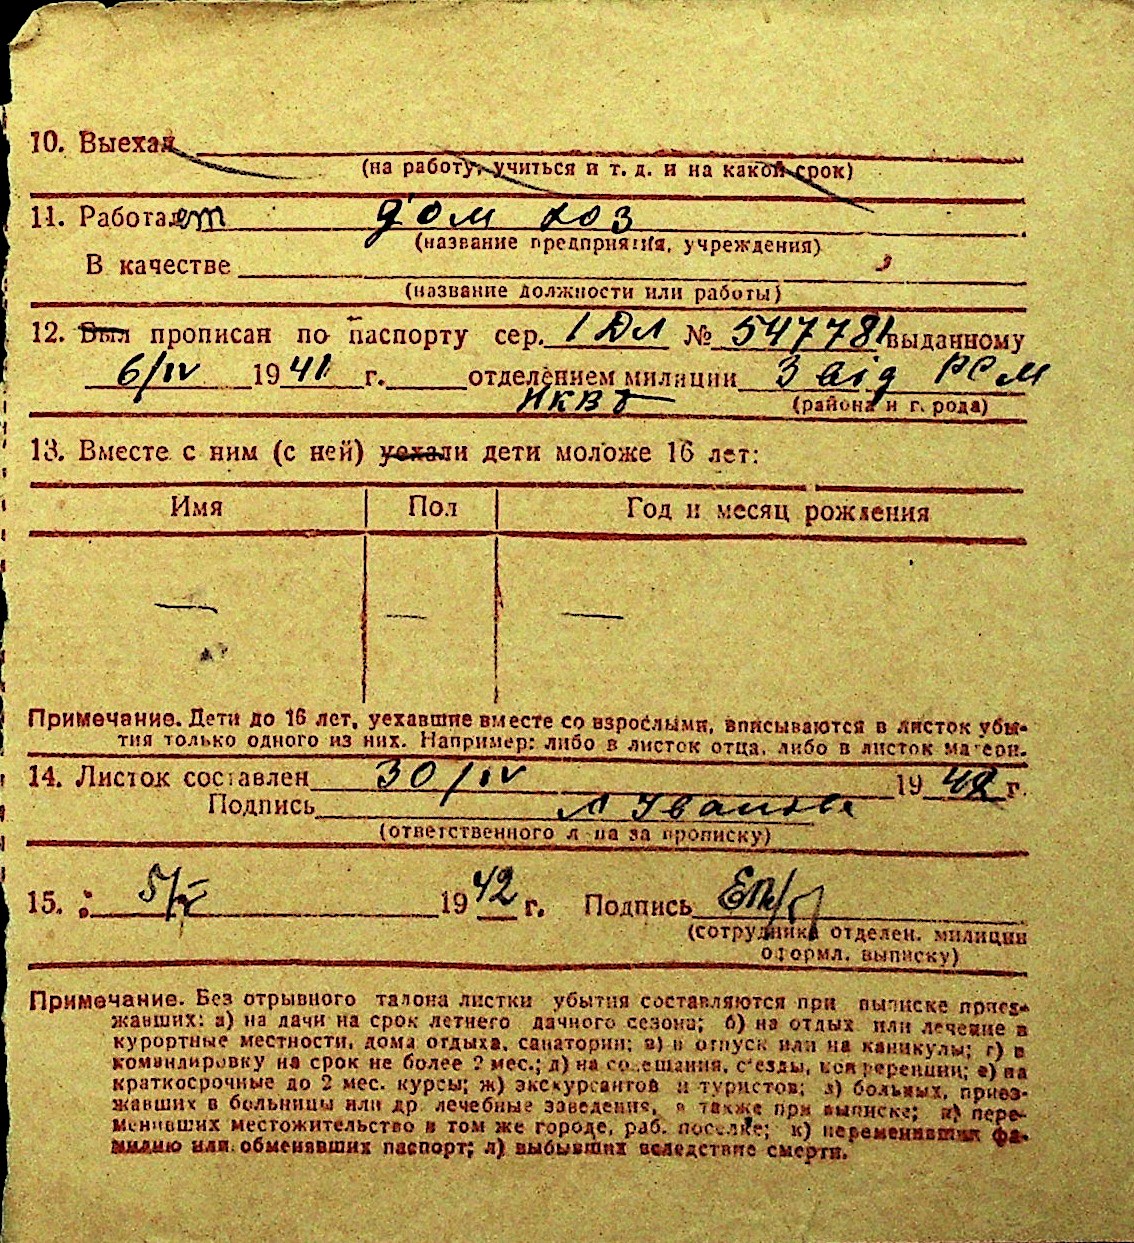 10. Выехал
(на работу, учиться и т. д. и на какой срок)
11. Работает дом хоз
(название предприятия, учреждения)
В качестве
(название должности или работы)
12. Был прописан по паспорту сер. 1 Дл № 547781 выданному
6/IV 1941 г. отделением милиции 3 від РСМ
НКВД (района и города)
13. Вместе с ним (с ней) уехали дети моложе 16 лет:
Имя Пол Год и месяц рождения
— — —
Примечание. Дети до 16 лет, уехавшие вместе со взрослыми, вписываются в листок убы-
тия только одного из них. Например: либо в листок отца, либо в листок матери.
14. Листок составлен 30/IV 1942 г.
Подпись
(ответственного лица за прописку)
15. 5/V 1942 г. Подпись
(сотрудника отделен. милиции
оформл. выписку)
Примечание. Без отрывного талона листки убытия составляются при выписке приез-
жавших: а) на дачи на срок летнего дачного сезона; б) на отдых или лечение в
курортные местности, дома отдыха, санатории; в) в отпуск или на каникулы; г) в
командировку на срок не более 2 мес.; д) на совещания, съезды, конференции; е) на
краткосрочные до 2 мес. курсы; ж) экскурсантов и туристов; з) больных, приез-
жавших в больницы или др. лечебные заведения, а также при выписке; и) пере-
менивших местожительство в том же городе, раб. поселке; к) переменивших фа-
милию или обменявших паспорт; л) выбывших вследствие смерти.